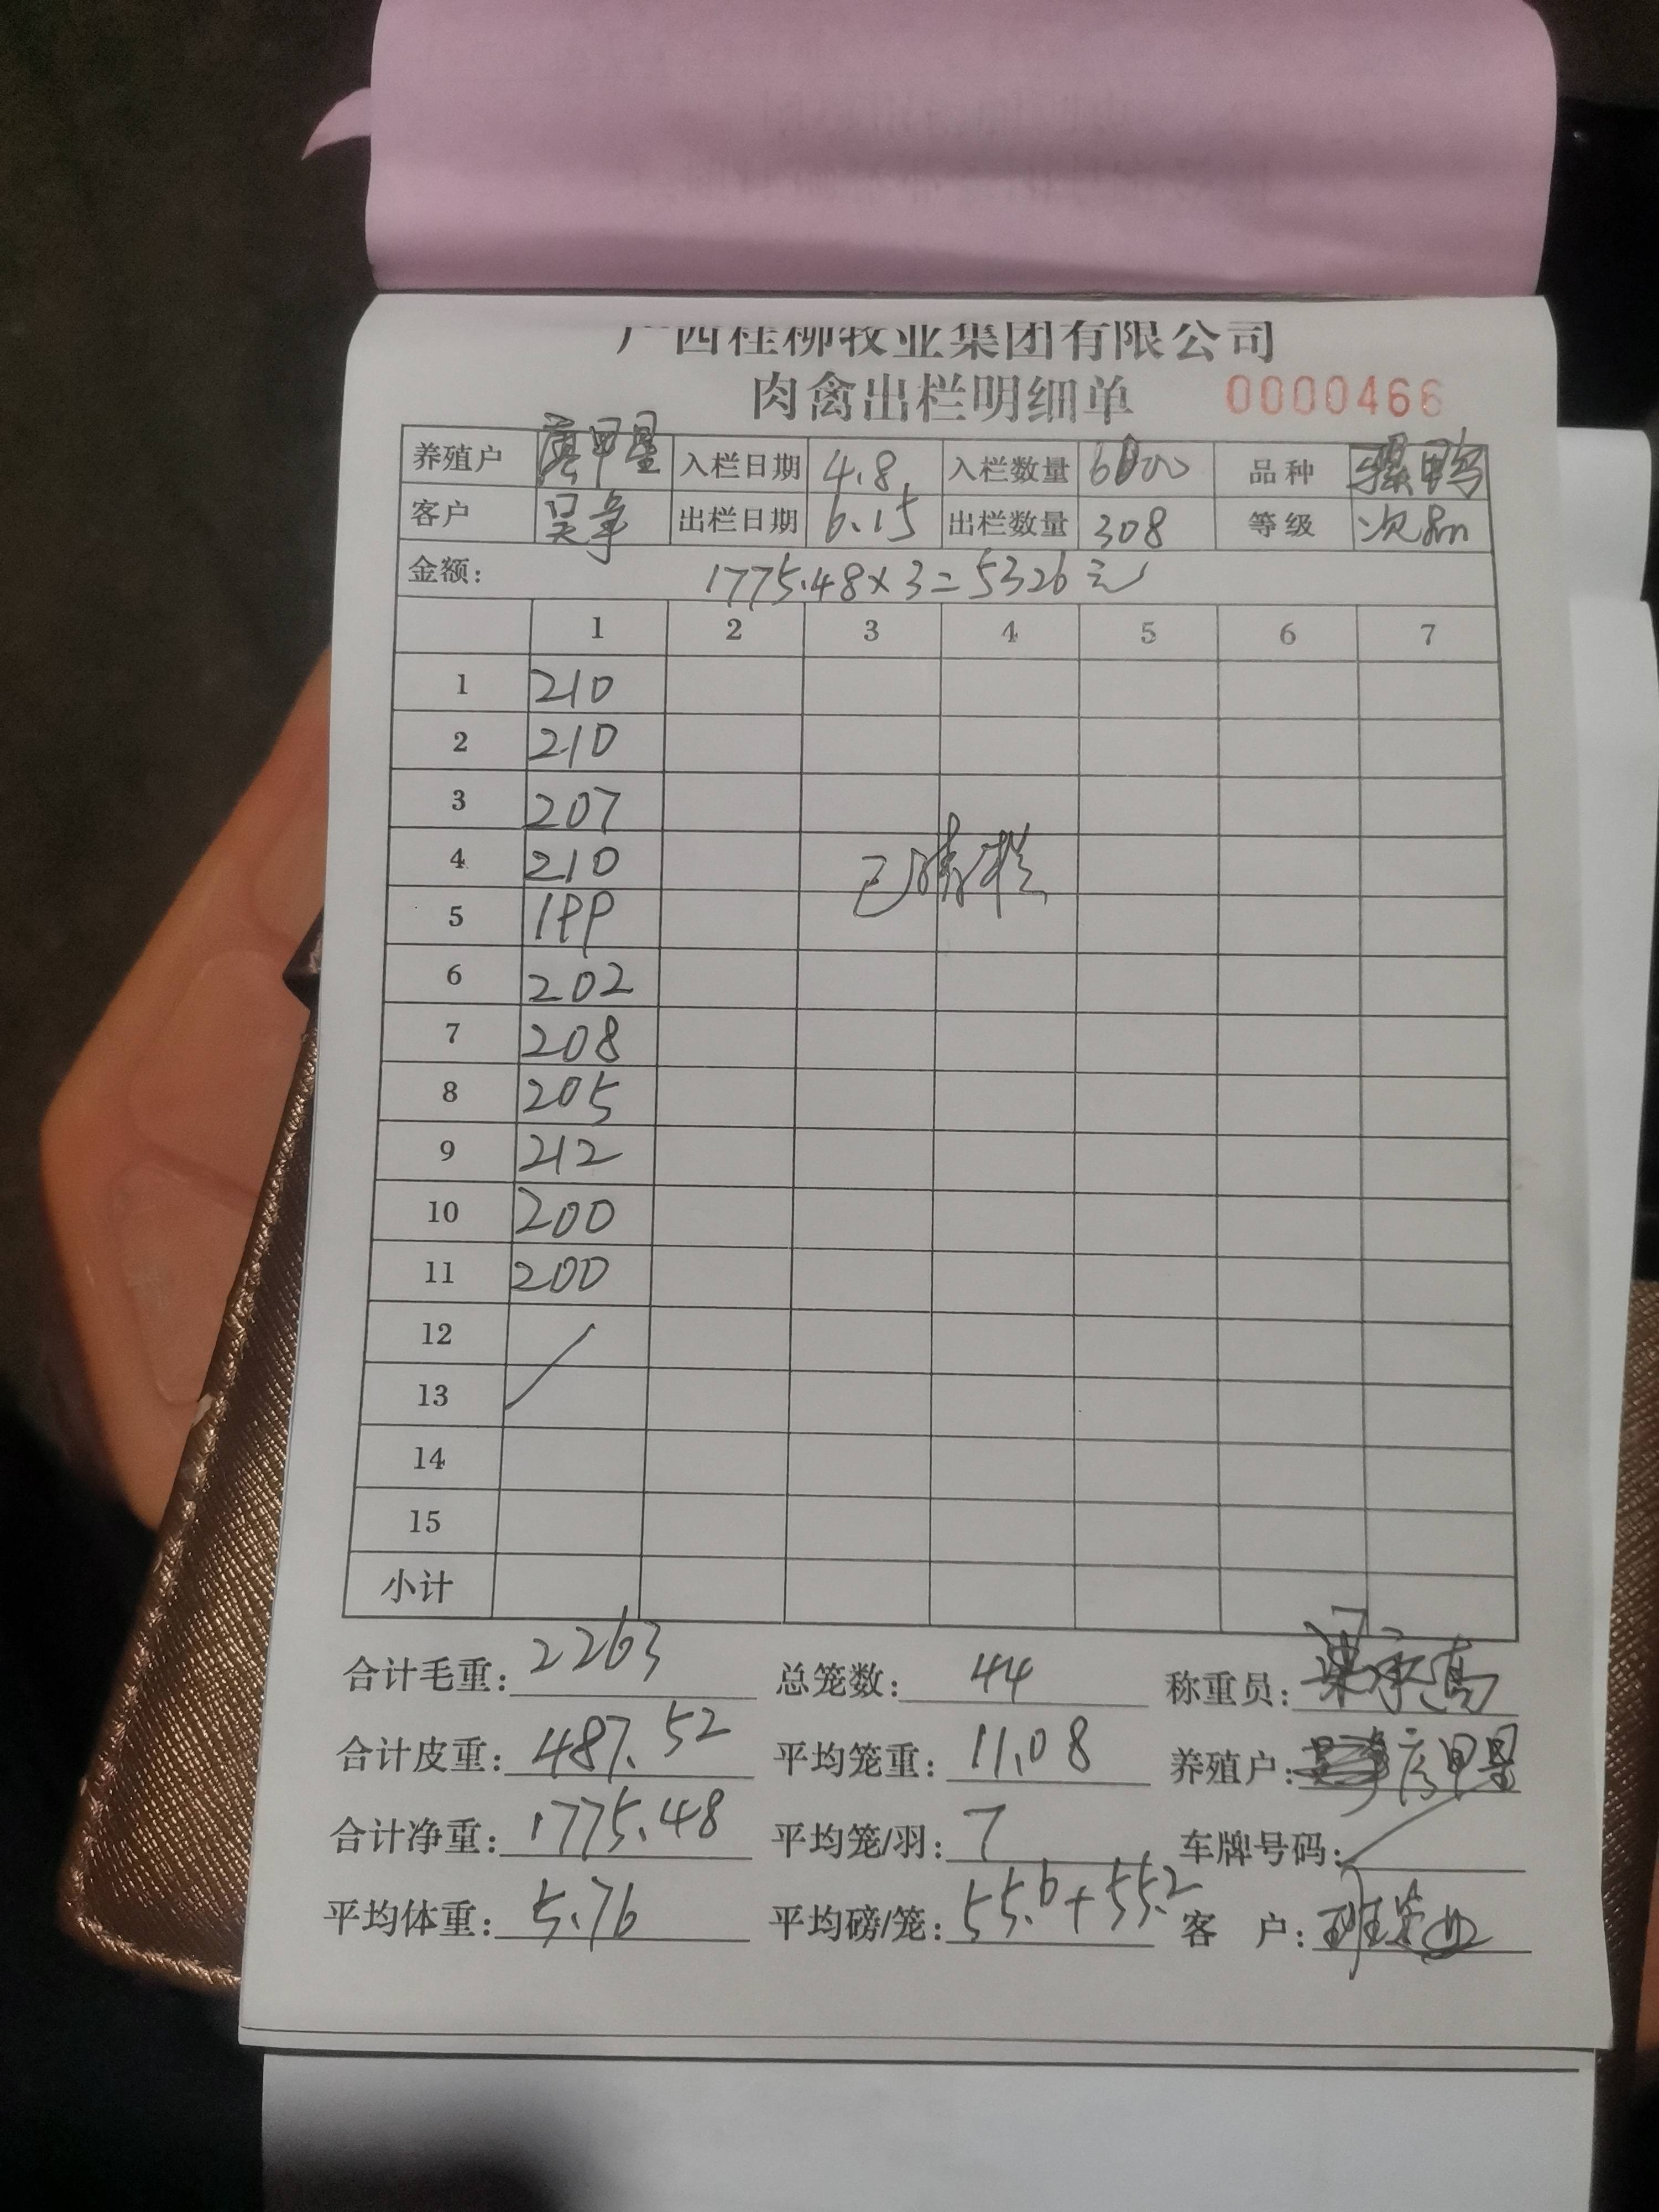 广西桂柳牧业集团有限公司
肉禽出栏明细单 0000466
养殖户 甲星 入栏日期 4.8 入栏数量 6000 品种 骡鸭
客户 吴争 出栏日期 6.15 出栏数量 308 等级 次品
金额: 1775.48×3=5326元
1 2 3 4 5 6 7
1 210
2 210
3 207
4 210 已清栏
5 199
6 202
7 208
8 205
9 212
10 200
11 200
12
13
14
15
小计
合计毛重: 2263 总笼数: 44 称重员: 梁承高
合计皮重: 487.52 平均笼重: 11.08 养殖户: 甲星
合计净重: 1775.48 平均笼/羽: 7 车牌号码:
平均体重: 5.76 平均磅/笼: 55.6+55.2 客 户: 班